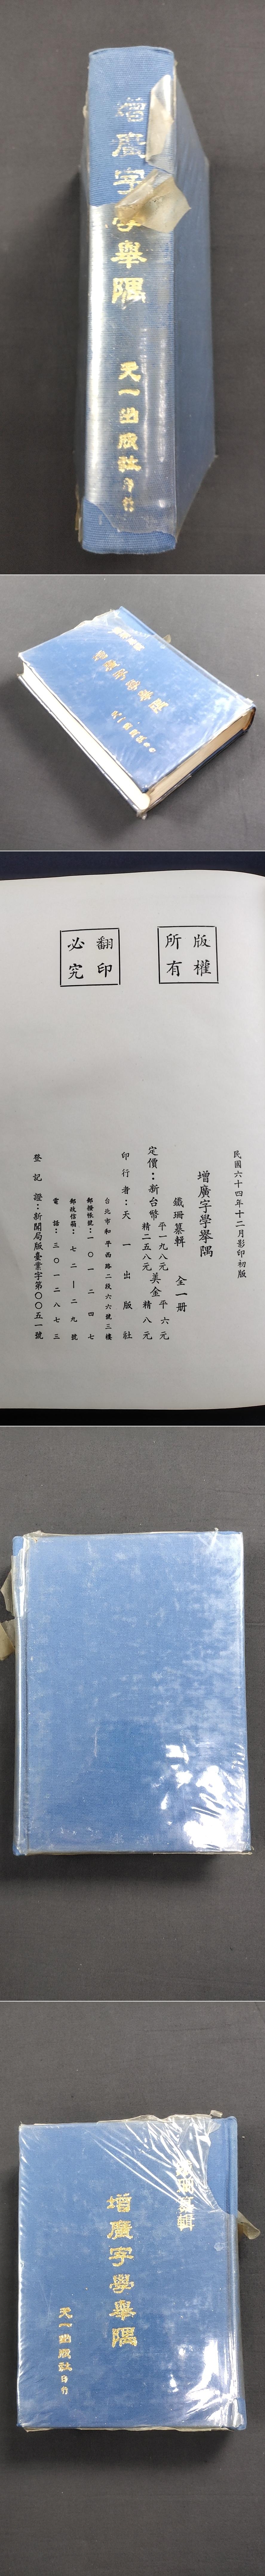 增廣字學舉隅
天一出版社印行
增廣字學舉隅
版權所有
翻印必究
民國六十四年十二月影印初版
增廣字學舉隅
鐵珊纂輯 全一册
定價：新台幣 平一九八元 精二五八元 美金 平六元 精八元
印行者：天一出版社
台北市和平西路二段六六號三樓
郵撥帳號：一〇一二四七
郵政信箱：七二—二九號
電話：三〇一二八七三
登記證：新聞局版臺業字第〇〇五一號
增廣字學舉隅
天一出版社印行